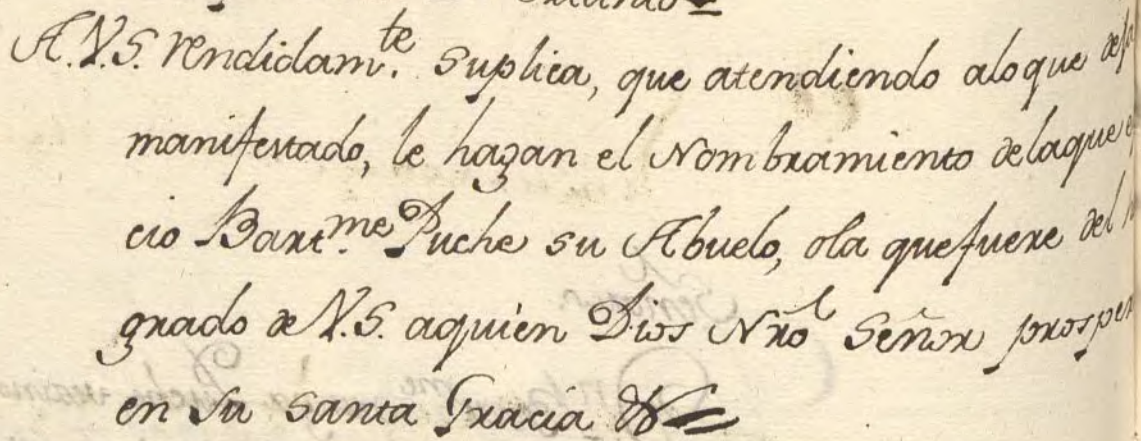 A.V.S. rendidam.te suplica, que atendiendo aloque
manifestado, le hagan el Nombramiento delaque
cio Bart.me Puche su Abuelo, ola quefuere del
grado de V.S. aquien Dios Nrõ Señor prosper
en su santa Gracia &